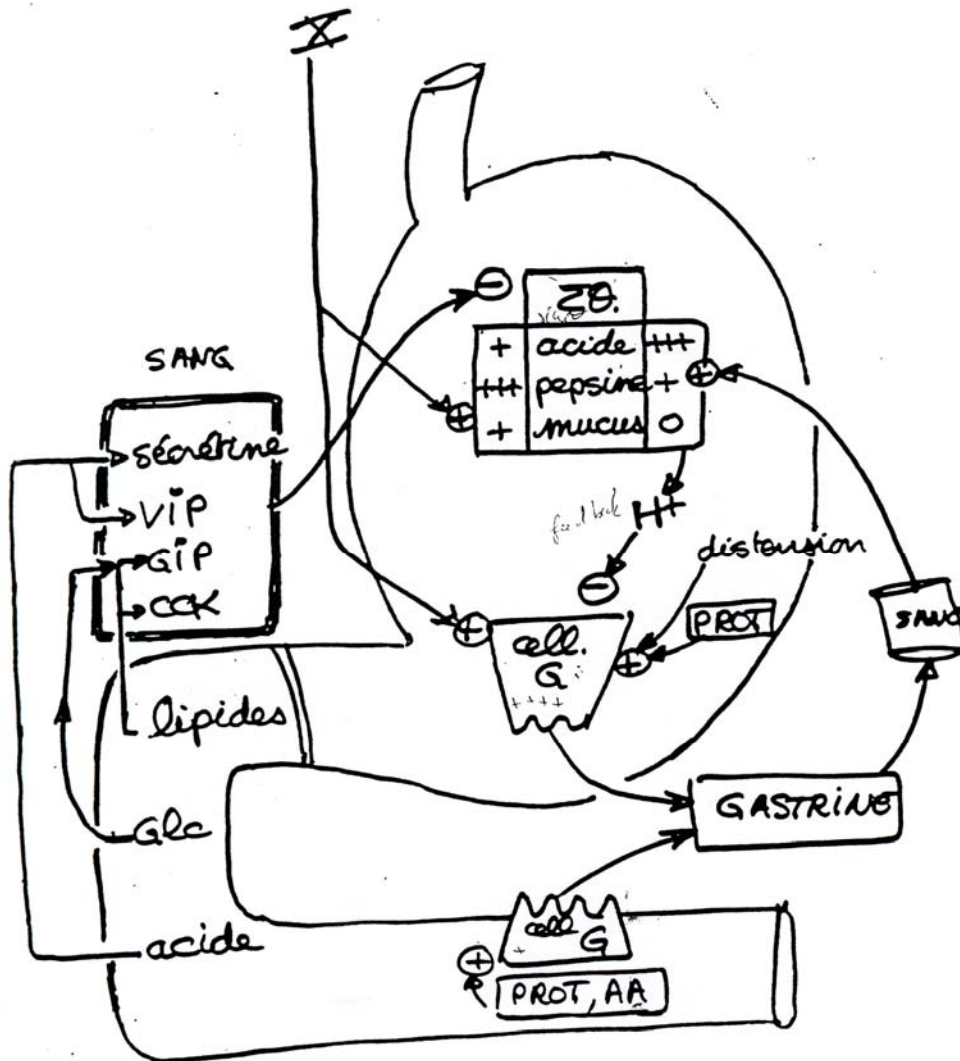 X
SANG
sécrétine
VIP
GIP
CCK
lipides
Glc
acide
+ acide +++
+++ pepsine +
+ mucus 0
feedback
distension
PROT
cell.
G
++++
SANG
GASTRINE
cell
G
+
PROT, AA